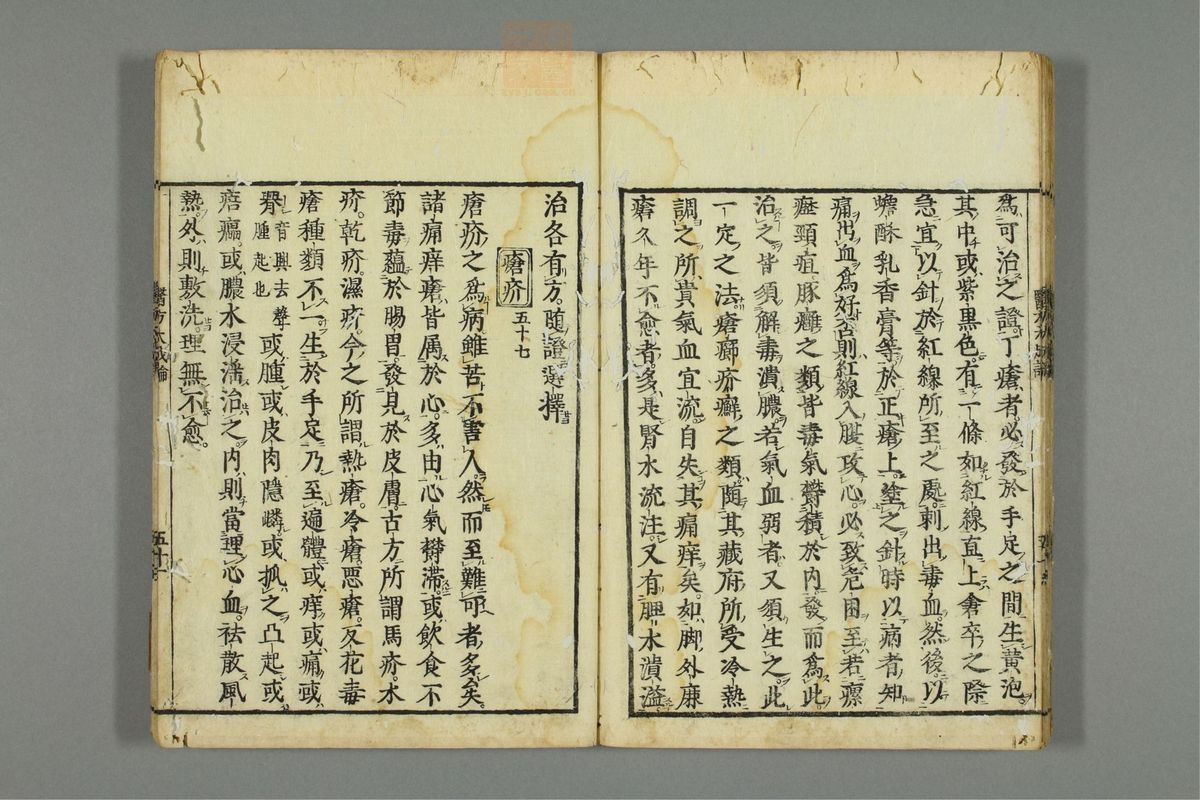 爲可治之證丁瘡者必發於手足之間生黃泡
其中或紫黑色有一條如紅線直上倉卒之際
急宜以針於紅線所至之處刺出毒血然後以
蟾酥乳香膏等於正瘡上塗之針時以病者知
痛出血爲好否則紅線入腹攻心必致危困至若瘭
瘂頸疽豚癰之類皆毒氣欝積於内發而爲此
治之皆須解毒潰膿若氣血弱者又須生之此
一定之法瘡癤疥癬之類随其藏府所受冷熱
調之所貴氣血宜流自失其痛痒矣如脚外廉
瘡久年不愈者多是腎水流注又有脾水潰溢
治各有方随證選擇
瘡疥 五十七
瘡疥之爲病雖苦不害人然而至難可者多矣
諸痛痒瘡皆属於心多由心氣欝滞或飲食不
節毒蘊於腸胃發見於皮膚古方所謂馬疥水
疥乾疥濕疥今之所謂熱瘡冷瘡惡瘡反花毒
瘡種類不一生於手足乃至遍體或痒或痛或
音興去聲
腫起也
或腫或皮肉隱嶙或抓之凸起或
痦㿔或膿水浸潘治之内則當理心血祛散風
熱外則敷洗理無不愈